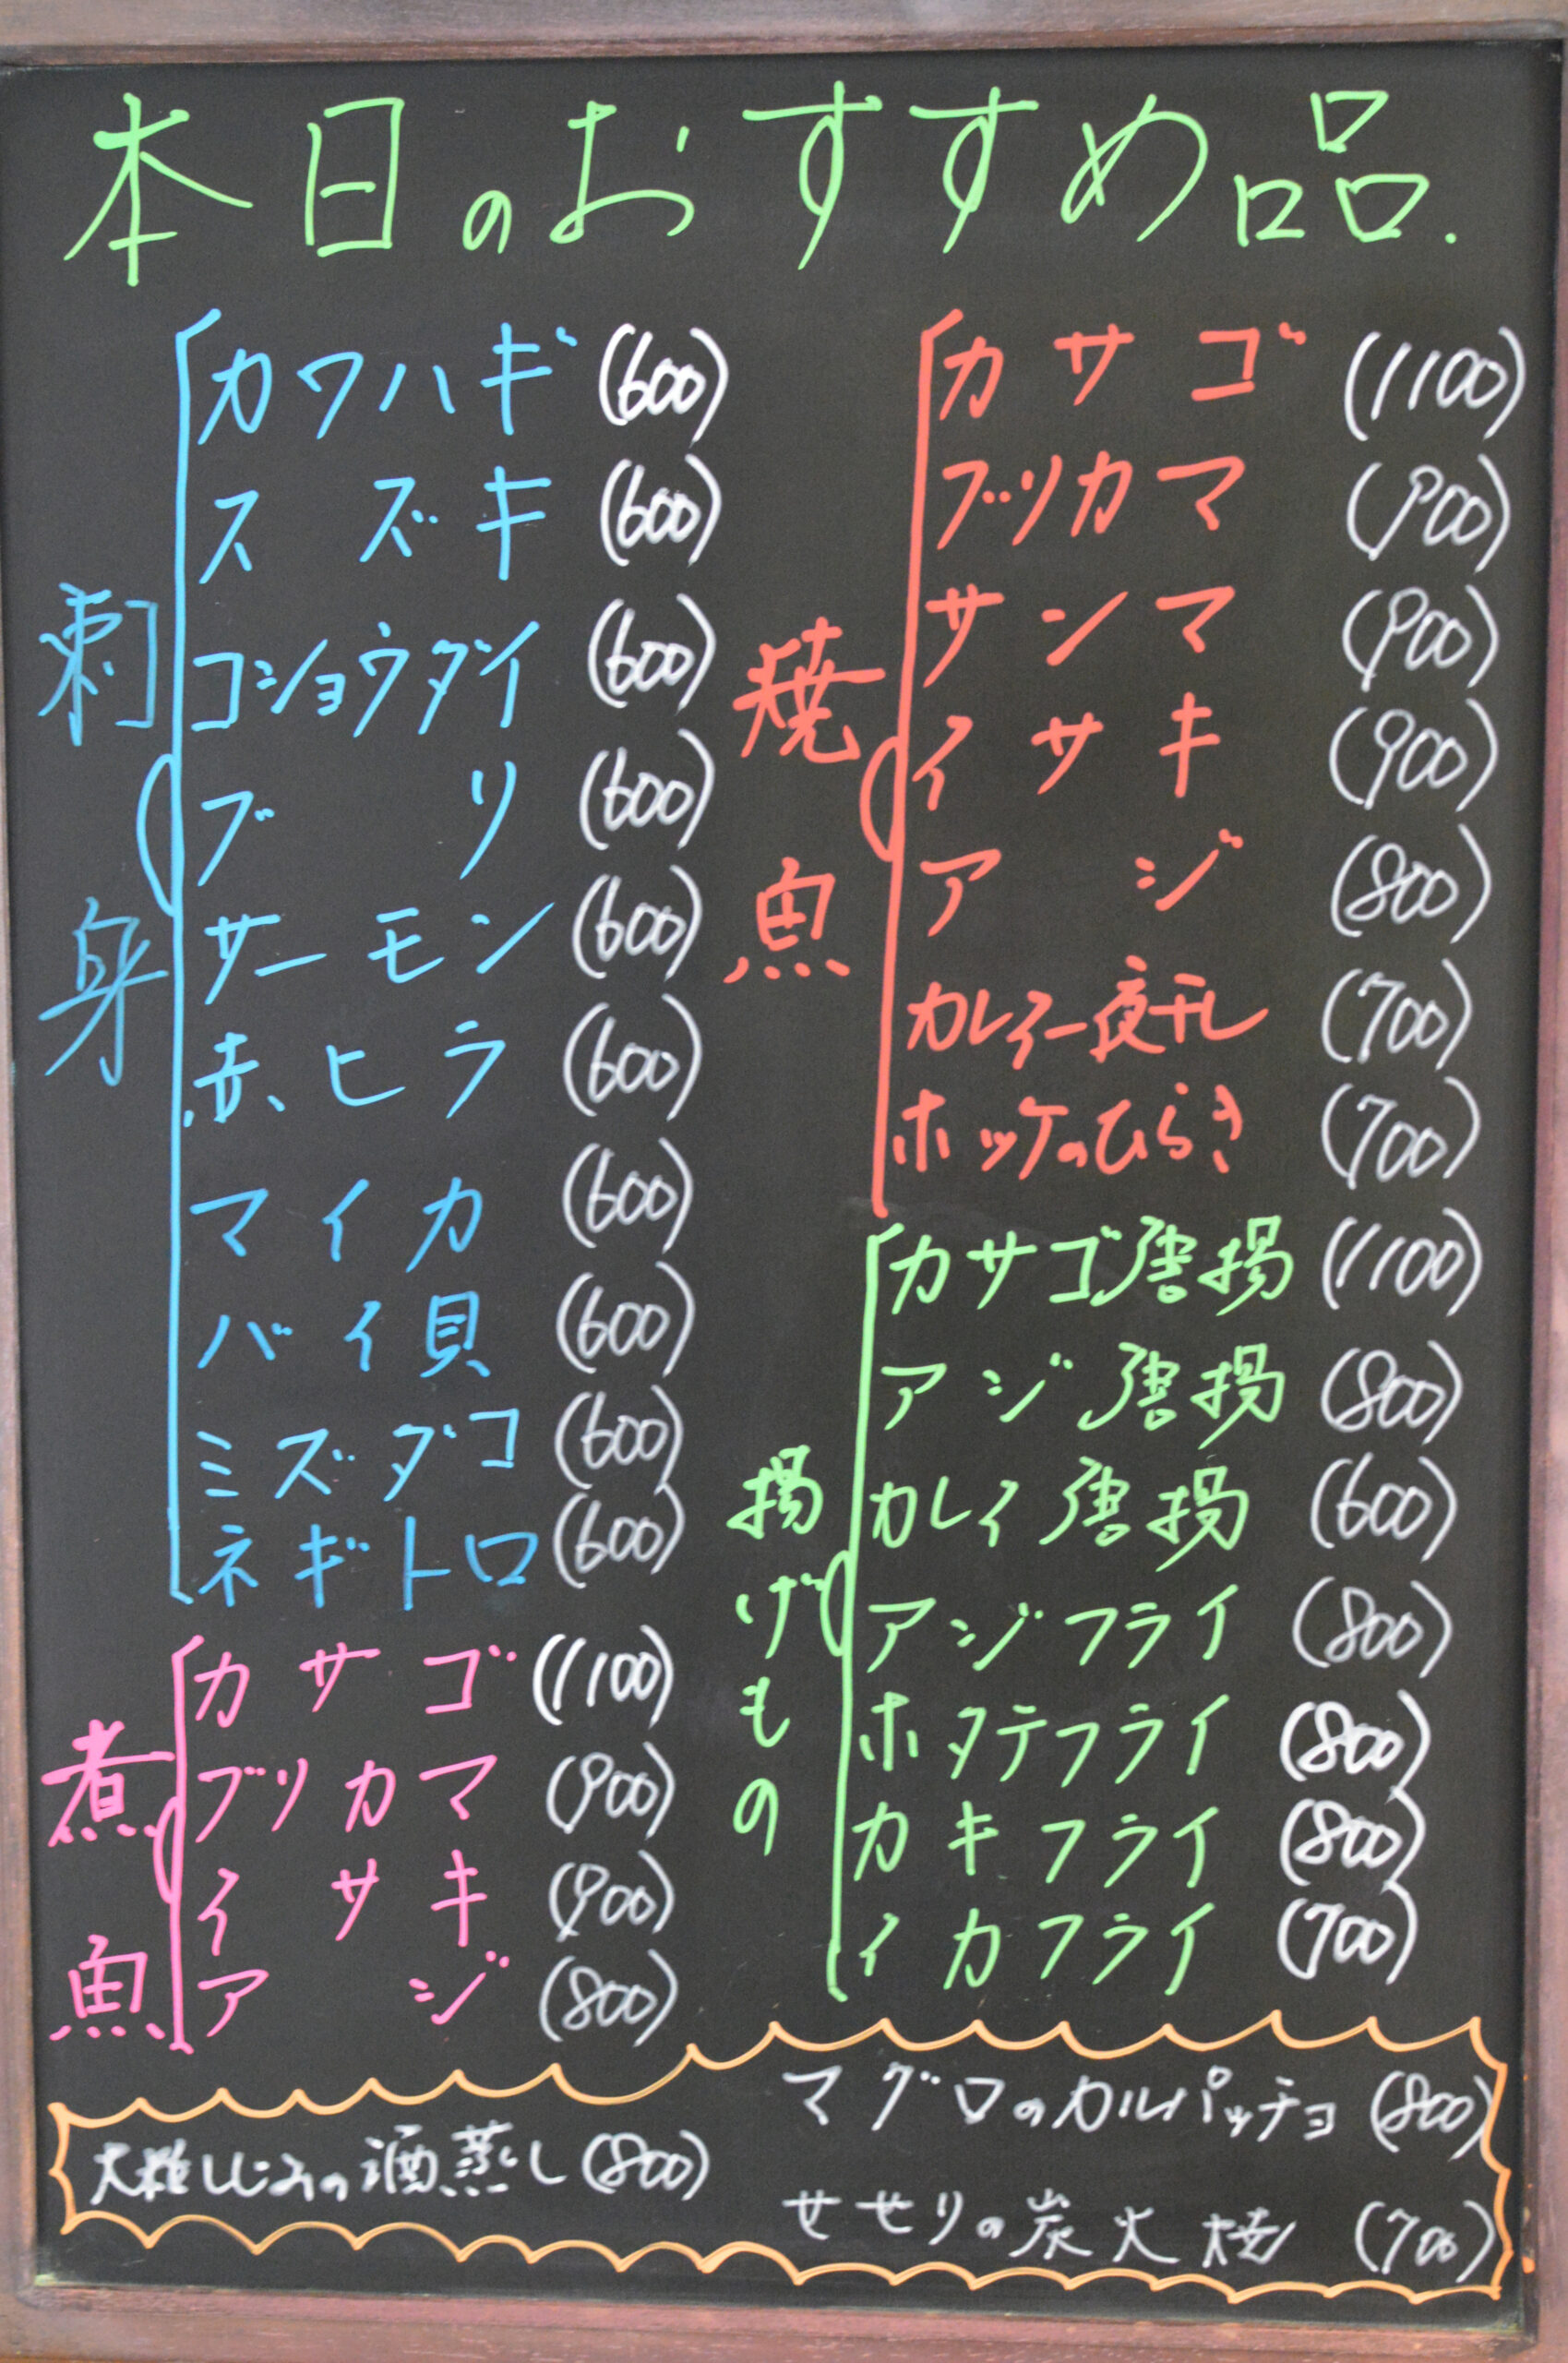 本日のおすすめ品.
刺身
カワハギ (600)
スズキ (600)
コショウダイ (600)
ブリ (600)
サーモン (600)
赤ヒラ (600)
マイカ (600)
バイ貝 (600)
ミズダコ (600)
ネギトロ (600)
煮魚
カサゴ (1100)
ブリカマ (900)
イサキ (900)
アジ (800)
焼魚
カサゴ (1100)
ブリカマ (900)
サンマ (900)
イサキ (900)
アジ (800)
カレイ一夜干し (700)
ホッケのひらき (700)
揚げもの
カサゴ唐揚 (1100)
アジ唐揚 (800)
カレイ唐揚 (600)
アジフライ (800)
ホタテフライ (800)
カキフライ (800)
イカフライ (700)
大粒しじみの酒蒸し (800)
マグロのカルパッチョ (800)
せせりの炭火焼 (700)